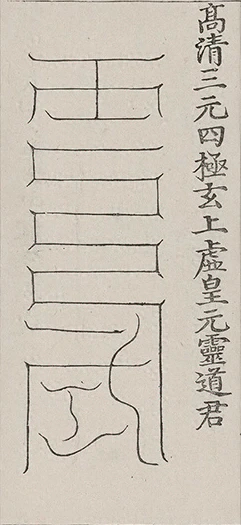 髙清三元四極玄上虛皇元靈道君